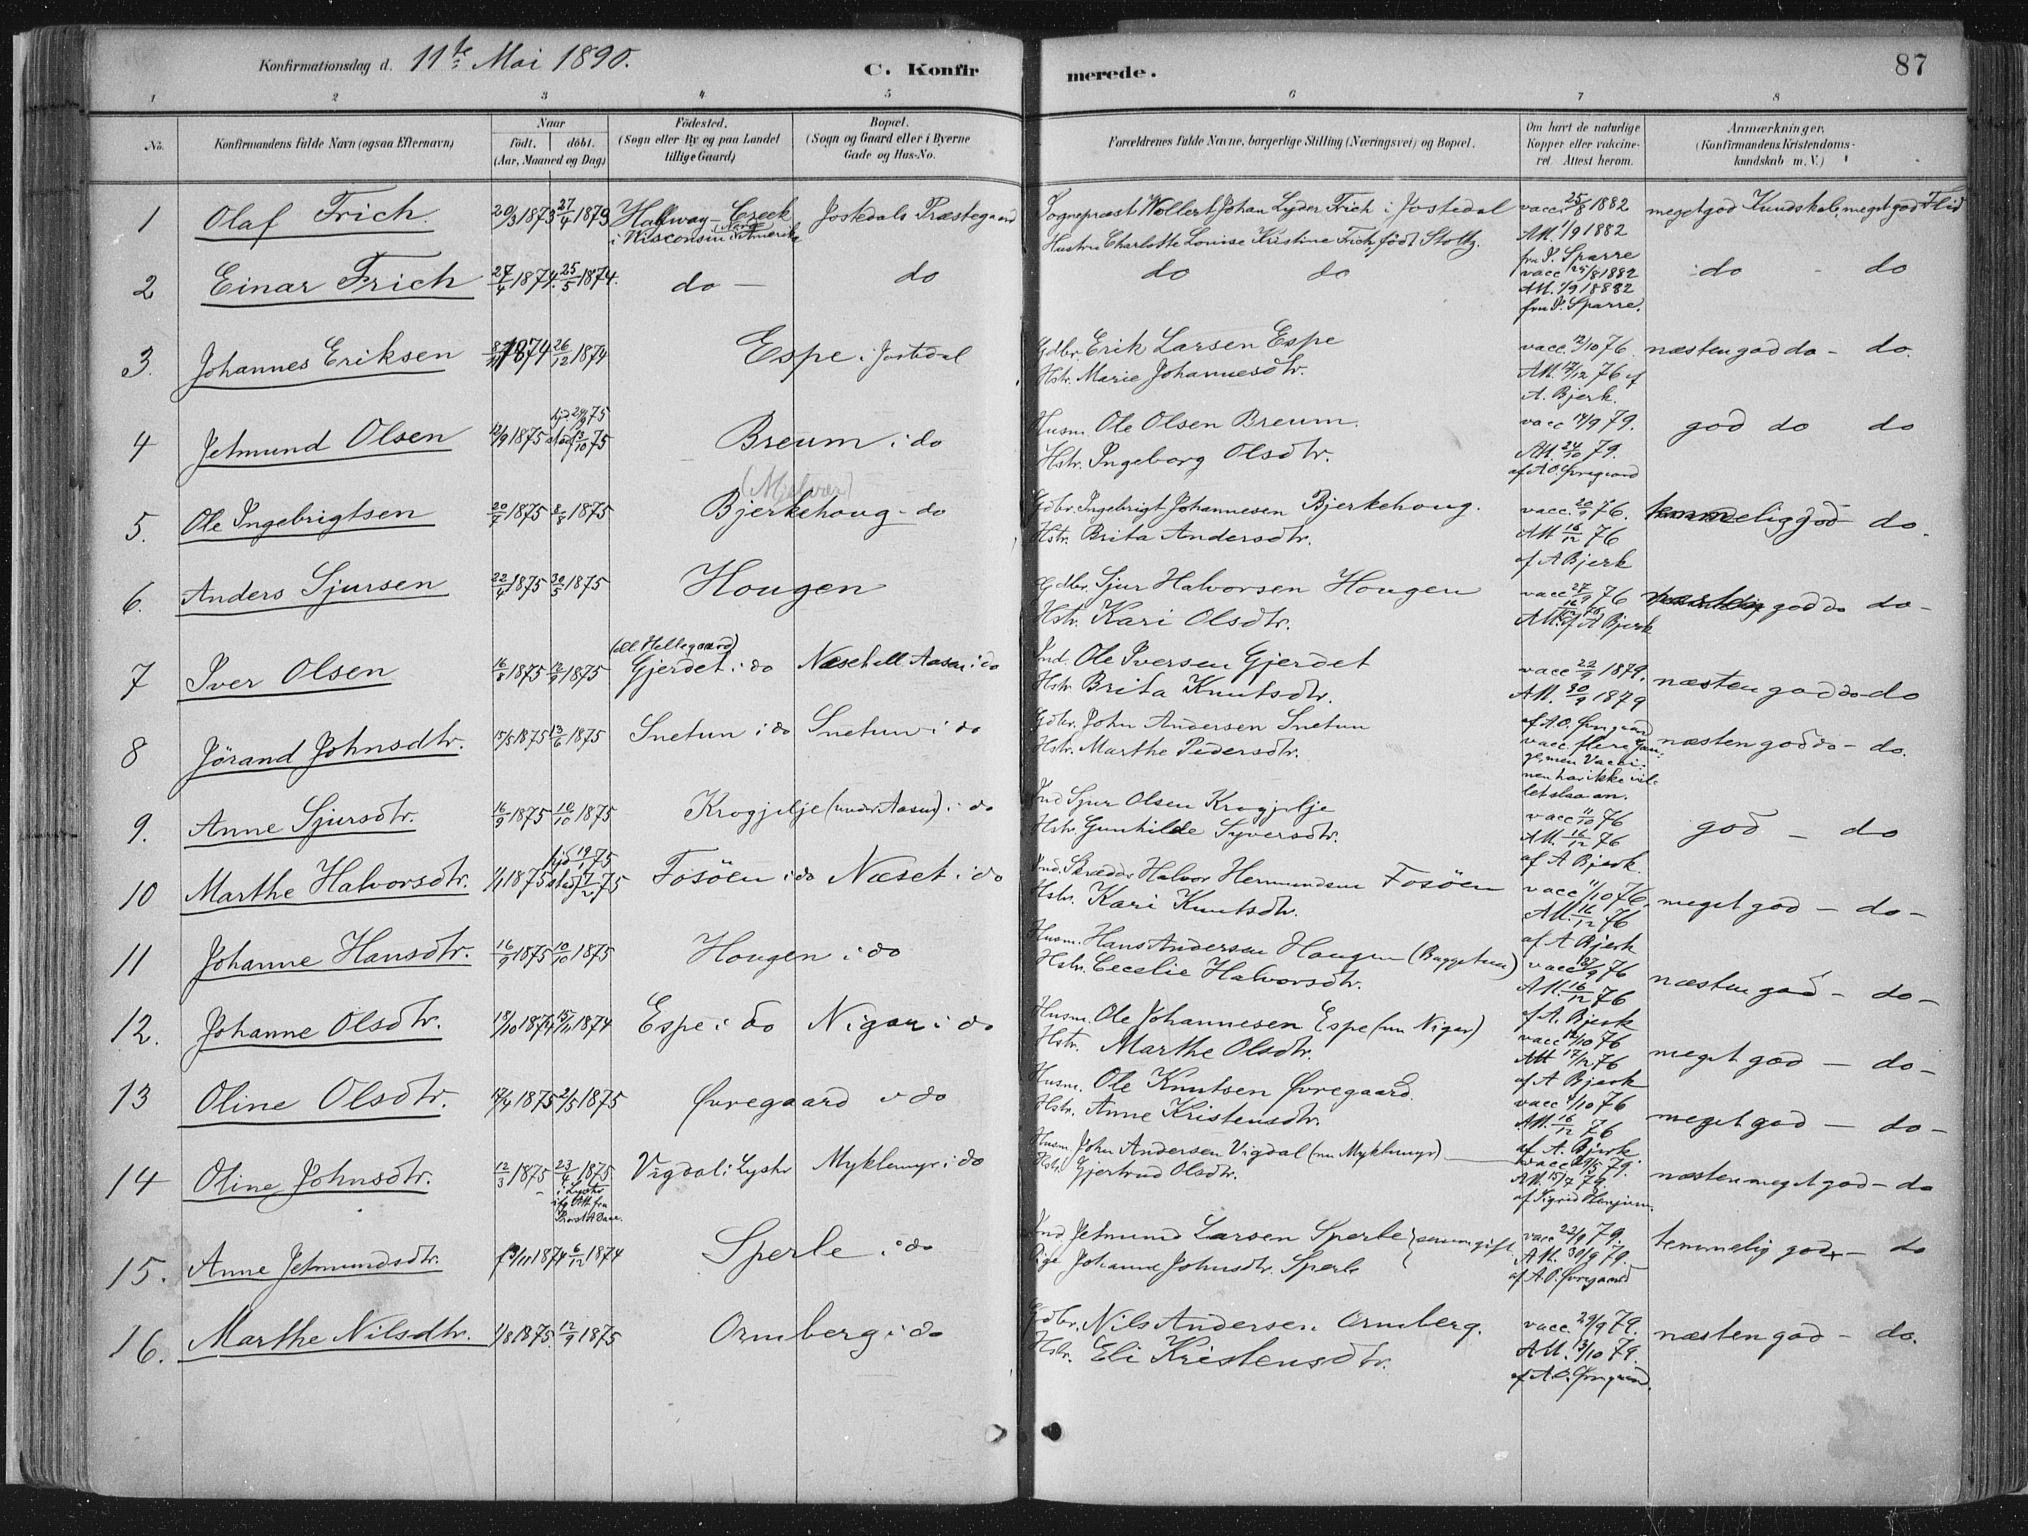 Konfirmationsdag d. 11te Mai 1890.
C. Konfirmerede.
87
1 2 3 4 5 6 7 8
No.
Konfirmandens fulde Navn (ogsaa Efternavn)
Naar
födt. döbt.
(Aar, Maaned og Dag)
Födested.
(Sogn eller By og paa Landet
tillige Gaard)
Bopæl.
(Sogn og Gaard eller i Byerne
Gade og Hus-No.
Forældrenes fulde Navne, borgerlige Stilling (Næringsvei) og Bopæl.
Om havt de naturlige
Kopper eller vakcine-
ret. Attest herom.
Anmærkninger.
(Konfirmandens Kristendoms-
kundskab m. V.)
1 Olaf Frich 20/3 1873 27/4 1873 Halfway-Creek Jostedals Præstegaard Sognepræst Wollert Johan Lyder Frich i Jostedal vacc. 25/8 1882 meget god Kundskab, meget god Flid
i Wisconsin Norda Amerika Hustru Charlotte Louise Kristine Frich, född Stoltz. Att. 1/9 1882
fra P. Sparre
2 Einar Frich 27/4 1874. 25/5 1874. do — do do do vacc 25/8 1882 do - do
Att. 1/9 18882
fra P. Sparre.
3. Johannes Eriksen 1874 26/12 1874 Espe i Jostedal Gdbr. Erik Larsen Espe vacc. 12/10 76. næsten god do - do.
Hstr. Marie Johannesdtr. Att. 17/12 76 af
A. Bjerk.
4 Jetmund Olsen 12/9 1875 75 Breum i do Husm. Ole Olsen Breum. vacc 17/9 79. god do do
Hstr. Ingeborg Olsdtr. Att. 24/10 79.
af A O. Øvregaard
(Mjelvær)
5. Ole Ingebrigtsen 20/7 1875 8/8 1875 Bjerkehoug - do Gdbr. Ingebrigt Johannesen Bjerkehoug. vacc. 20/9 76. temmelig god do.
Hstr. Brita Andersdtr. Att 16/12 76
af A Bjerk
6. Anders Sjursen 22/4 1875 30/5 1875 Hougen Gdbr. Sjur Halvorsen Hougen vacc 27/9 76 god do do -
Hstr. Kari Olsdtr. Att. 16/12 76 af A Bjerk
(ell Hellegaard)
7 Iver Olsen 16/8 1875 12/9 1875 Gjerdet i do Næset ell Aasen i do Ind. Ole Iversen Gjerdet vacc 22/9 1879. næsten god do do
Hstr Brita Knutsdtr. Att. 30/9 1879
af A. O. Øvregaard
8 Jörand Johnsdtr. 15/5 1875 13/6 1875 Snetun i do Snetun i do Gdbr. John Andersen Snetun vacc. flere Gan- næsten god do - do.
Hstr. Marthe Pedersdtr. ge, men Vacci-
nen har ikke vil-
let slaa an.
9. Anne Sjursdtr. 16/9 1875 10/10 1875 Krogjelje (under Aasen) i do Ind Sjur Olsen Krogjelje vacc 11/10 76 god - do
Hstr. Gunhilde Syversdtr. Att. 16/12 76
af A Bjerk.
10 Marthe Halvorsdtr. 1/1 1875 hjd 19/1 75 Fosöen i do Næset i do Ind. Skrædder Halvor Hermundsen Fosöen vacc 11/10 76. meget god - do -
Hstr. Kari Knutsdtr. Att. 16/12 76
af A Bjerk
11 Johanne Hansdtr. 16/9 1875 10/10 1875 Hougen i do Husm. Hans Andersen Hougen (Buggetun) vacc 27/9 76 næsten god - do -
Hstr. Cecelie Halvorsdtr. Att. 16/12 76
af A. Bjerk
12. Johanne Olsdtr. 18/10 1874 15/11 1874 Espe i do Nigar i do Husm. Ole Johannesen Espe (nu Nigar) vacc 12/10 76 meget god - do -
Hstr. Marthe Olsdtr. Att 17/12 76
af A Bjerk
13 Oline Olsdtr. 17/4 1875 2/5 1875 Øvregaard i do Husm. Ole Knutsen Øvregaard. vacc 4/10 76 meget god - do -
Hstr. Anne Kristensdtr. Att. 16/12 76
af A. Bjerk.
14 Oline Johnsdtr. 12/3 1875 23/4 1875 Vigdal i Lyster Myklemyr i do Husm John Andersen Vigdal (nu Myklemyr) vacc 29/5 79. næsten meget god - do
i Lyster Hstr. Gjertrud Olsdtr. Att. 15/7 79.
ifg Att fra af Sigrid Henjum.
15. Anne Jetmundsdtr. 13/11 1874 6/12 1874 Sperle i do Ind. Jetmund Larsen Sperle } senere gift. vacc 22/9 79. temmelig god - do
Pige Johanne Johnsdtr. Sperle Att. 30/9 79.
af A. O. Øvregaard
16. Marthe Nilsdtr. 1/8 1875. 12/9 1875 Ormberg i do Gdbr. Nils Andersen Ormberg. vacc. 29/9 79. næsten god - do.
Hstr. Eli Kristensdtr. Att. 13/10 79.
af A. O. Øvregaard.